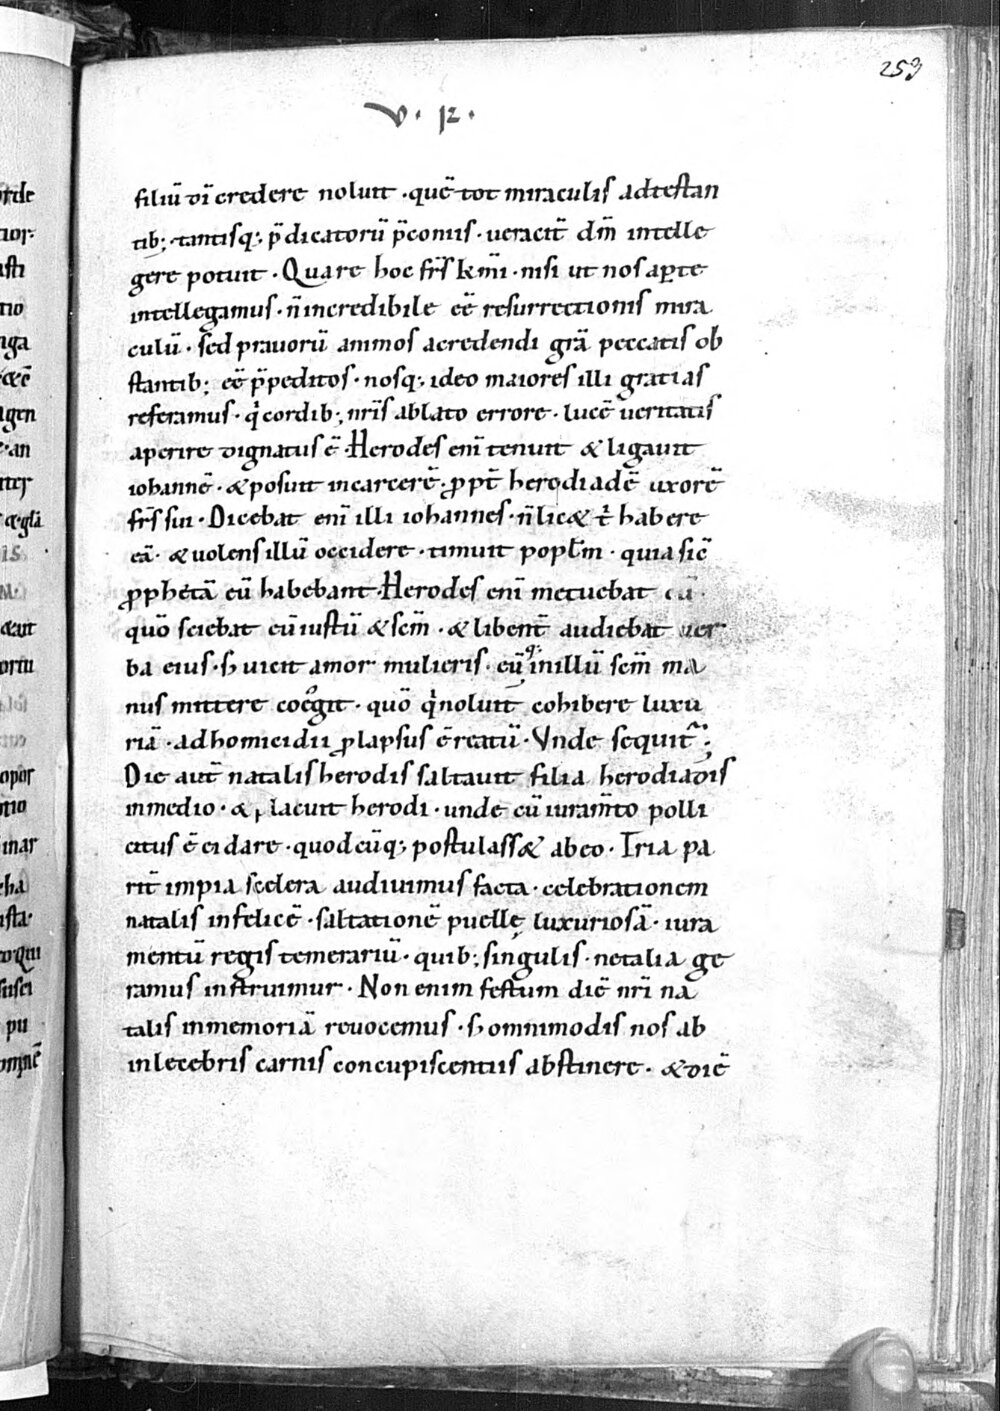 253
V. R.
filiū dī credere noluit · quē tot miraculis adtestan
tib; · tantisq; p̄dicatorū p̄coniis · ueracit̄ dm̄ intelle
gere potuit · Quare hoc frs̄ km̄i · nisi ut nos aꝑte
intellegamus · n̄ incredibile eē resurrectionis mira
culū · sed prauorū animos acredendi grā peccatis ob
stantib; eē p̄peditos · nosq; ideo maiores illi gratias
referamus · qͥ cordib; nrīs ablato errore · lucē ueritatis
aperire dignatus ē · Herodes eni̅ tenuit & ligauit
iohannē · & posuit incarcerē · ꝓpt̄ herodiadē uxorē
frīs sui · Dicebat eni̅ illi iohannes · n̄ lic& tͥ habere
eā · & uolens illū occidere · timuit popl̄m · quia sic̄
ꝓphetā eū habebant · Herodes eni̅ metuebat eū ·
quō sciebat eū iustū & scm̄ · & libent̄ audiebat uer
ba eius · s; uicit amor mulieris · eū qͦ; inillū scm̄ ma
nus mittere coegit · quō qͥ noluit cohibere luxu
riā · ad homicidii ꝓlapsus ē reatū · Vnde sequit̃ ;
Die aut̄ natalis herodis saltauit filia herodiadis
inmedio · & placuit herodi · unde cū iuram̄to polli
citus ē ei dare · quodcūq; postulass& abeo · Tria pa
rit̄ impia scelera audiuimus facta · celebrationem
natalis infelicē · saltationē puellę luxuriosā · iura
mentū regis temerariū · quib; singulis · netalia ge
ramus instruimur · Non enim festum diē nr̄i na
talis inmemoriā reuocemus · s; omnimodis nos ab
inlecebris carnis concupiscentiis abstinere · & diē